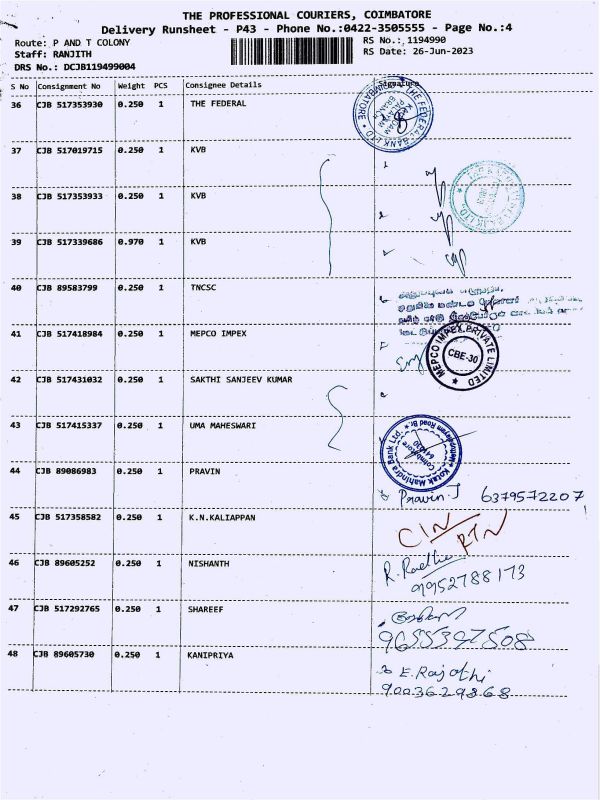 THE PROFESSIONAL COURIERS, COIMBATORE
Delivery Runsheet - P43 - Phone No.:0422-3505555 - Page No.:4
Route: P AND T COLONY RS No.: 1194990
Staff: RANJITH RS Date: 26-Jun-2023
DRS No.: DCJB119499004
S No Consignment No Weight PCS Consignee Details Signature
36 CJB 517353930 0.250 1 THE FEDERAL
THE FEDERAL BANK LTD
37 CJB 517019715 0.250 1 KVB
38 CJB 517353933 0.250 1 KVB
39 CJB 517339686 0.970 1 KVB
40 CJB 89583799 0.250 1 TNCSC
41 CJB 517418984 0.250 1 MEPCO IMPEX
MEPCO IMPEX PRIVATE LIMITED
CBE-30
42 CJB 517431032 0.250 1 SAKTHI SANJEEV KUMAR
43 CJB 517415337 0.250 1 UMA MAHESWARI
Kotak Mahindra Bank Ltd.
Coimbatore
44 CJB 89086983 0.250 1 PRAVIN
Pravin.J 6379572207
45 CJB 517358582 0.250 1 K.N.KALIAPPAN
CIN
RTN
46 CJB 89605252 0.250 1 NISHANTH
R. Radha
9952788173
47 CJB 517292765 0.250 1 SHAREEF
9655397508
48 CJB 89605730 0.250 1 KANIPRIYA
E. Rajathi
9003629868